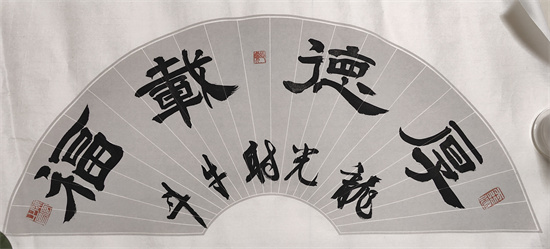 厚德載福
龍光射牛斗